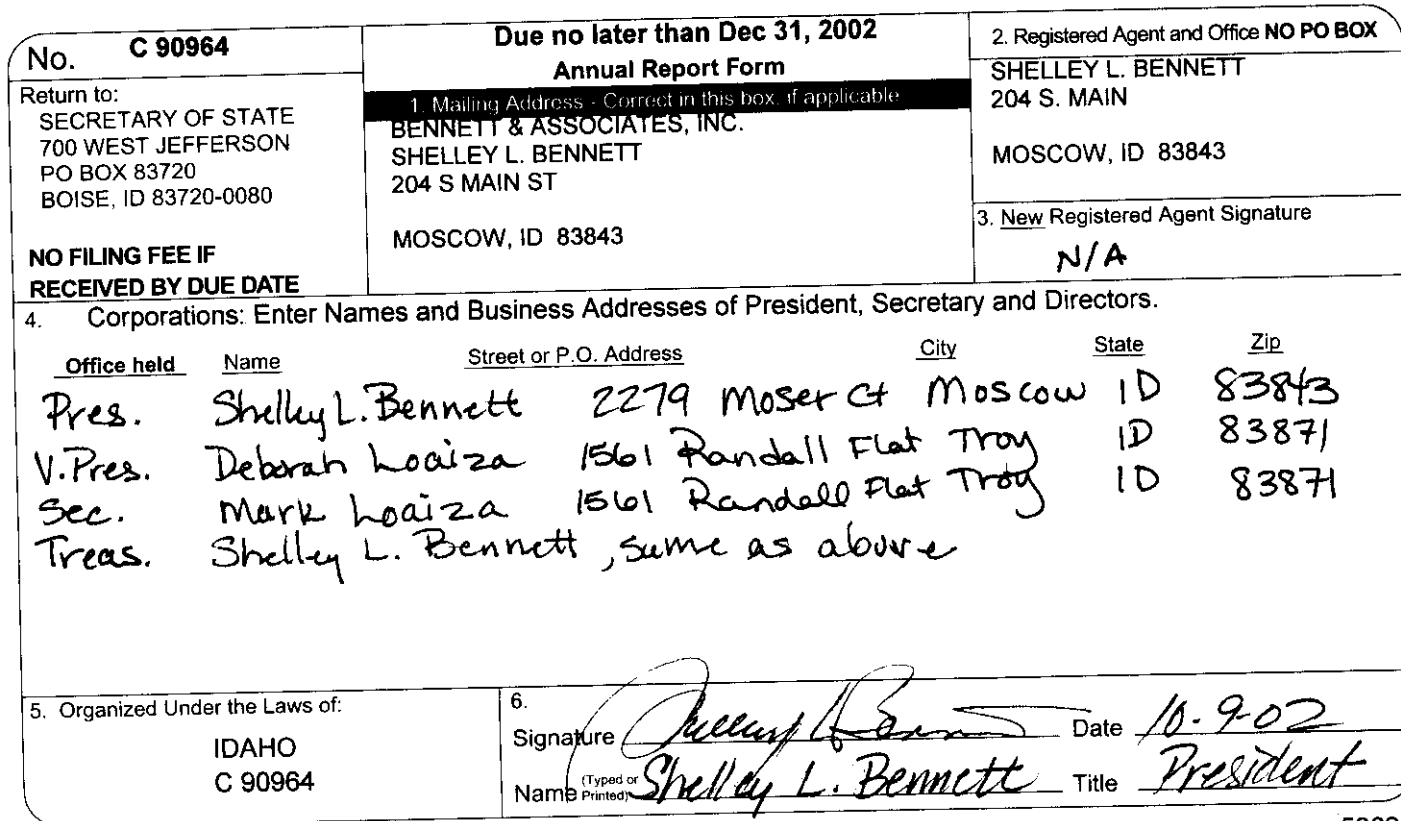 No. C 90964
Return to:
SECRETARY OF STATE
700 WEST JEFFERSON
PO BOX 83720
BOISE, ID 83720-0080
NO FILING FEE IF
RECEIVED BY DUE DATE
Due no later than Dec 31, 2002
Annual Report Form
1. Mailing Address - Correct in this box, if applicable
BENNETT & ASSOCIATES, INC.
SHELLEY L. BENNETT
204 S MAIN ST
MOSCOW, ID 83843
2. Registered Agent and Office NO PO BOX
SHELLEY L. BENNETT
204 S. MAIN
MOSCOW, ID 83843
3. New Registered Agent Signature
N/A
4. Corporations: Enter Names and Business Addresses of President, Secretary and Directors.
Office held Name Street or P.O. Address City State Zip
Pres. Shelley L. Bennett 2279 Moser Ct Moscow ID 83843
V.Pres. Deborah Loaiza 1561 Randall Flat Troy ID 83871
Sec. Mark Loaiza 1561 Randall Flat Troy ID 83871
Treas. Shelley L. Bennett, same as above
5. Organized Under the Laws of:
IDAHO
C 90964
6.
Signature Shelley L Bennett Date 10-9-02
Name (Typed or Printed) Shelley L. Bennett Title President